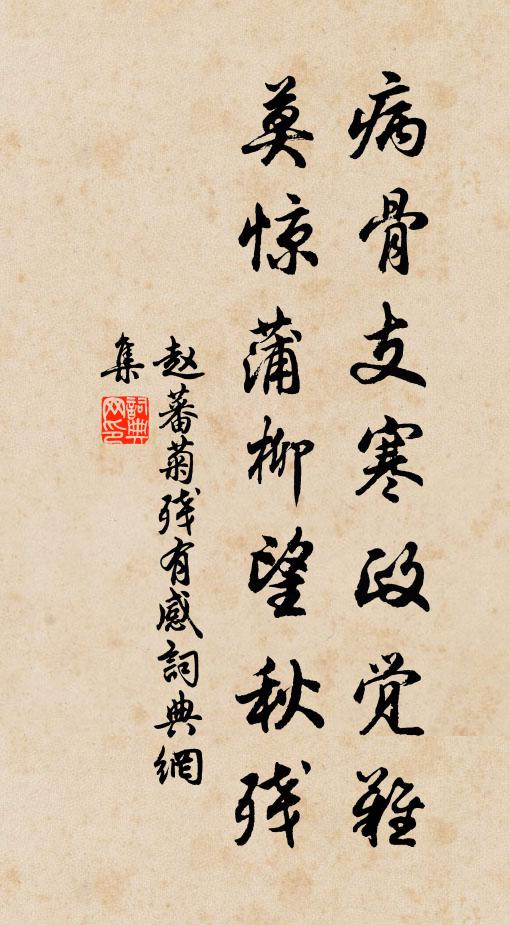 病骨支寒政觉难
莫惊蒲柳望秋残
赵蕃菊残有感詞典網
集
詞典
网印